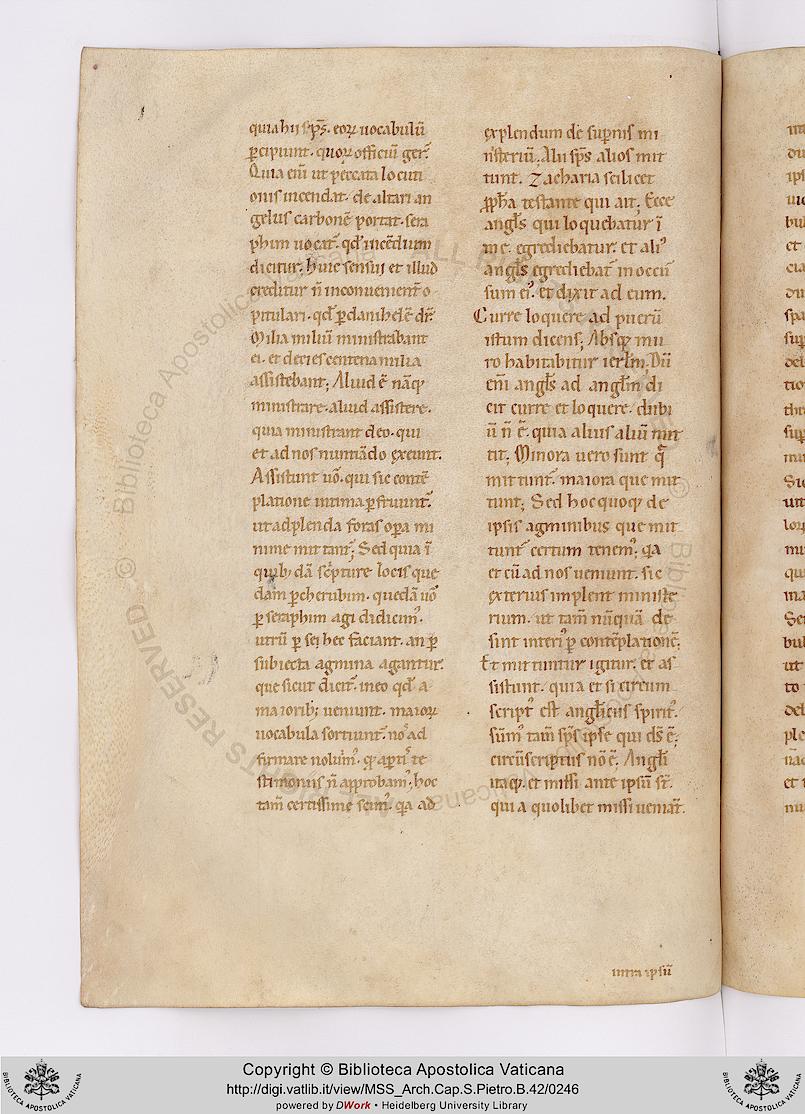 quia hii sp̄s. eoꝝ uocabulū
ꝑcipiunt. quoꝝ officiū ger̄.
Quia eni ut peccata locuti
onis incendat. de altari an
gelus carbonē portat. sera
phim uocat̄. qd̓ incēdium
dicitur. Huic sensui et illud
creditur n̄ inconuenient̄ o
pitulari. qd̓ ꝑ danihelē dr̄.
Milia miliū ministrabant
ei. et decies centena milia
assistebant; Aliud ē nāq;
ministrare. aliud assistere.
quia ministrant deo. qui
et ad nos nuntiādo exeunt.
Assistunt uō. qui sic contē
platione intima ꝑfruunt̄.
ut ad plenda foras oꝑa mi
nime mittant̄; Sed quia ī
quib; dā sc̓pture locis que
dam ꝑ cherubim. quedā uō
ꝑ seraphim agi didicim᾽.
utrū ꝑ se hec faciant. an ꝑ
subiecta agmina agantur.
que sicut dicit̄. in eo qd̓ a
maiorib; ueniunt. maioꝝ
uocabula sortiunt̄. nos ad
firmare nolum᾽. q̄ aꝑtis te
stimoniis n̄ approbam᾽; hoc
tam̄ certissime scim᾽. q̄a ad
explendum de suꝑnis mi
nisteriū. Alii sp̄s alios mit
tunt. Zacharia scilicet
ꝓph̄a testante qui ait. Ecce
angl̄s qui loquebatur ī
me. egrediebatur. et ali᾽
angl̄s egrediebat̄ in occur
sum ei᾽. et dixit ad eum.
Curre loquere ad puerū
istum dicens; Absq; mu
ro habitabitur ierl̄m. Dū
eni angl̄s ad angl̄m di
cit curre et loquere. dubi
ū n̄ ē. quia alius aliū mit
tit; Minora uero sunt q̄
mittunt̄. maiora que mit
tunt; Sed hoc quoq; de
ipsis agminibus que mit
tunt̄ certum tenem᾽. q̄a
et cū ad nos ueniunt. sic
exterius implent ministe
rium. ut tam̄ nūquā de
sint interi᾽ ꝑ contēplationē;
Et mittuntur igitur. et as
sistunt. quia et si circum
script᾽ est anglicus spirit᾽.
sūm᾽ tam̄ sp̄s ipse qui ds̄ ē;
circūscriptus nō ē; Angl̄i
itaq;. et missi ante ipsū st̄.
quia quolibet missi ueniat̄.
intra ipsū
Copyright © Biblioteca Apostolica Vaticana
http://digi.vatlib.it/view/MSS_Arch.Cap.S.Pietro.B.42/0246
powered by DWork • Heidelberg University Library